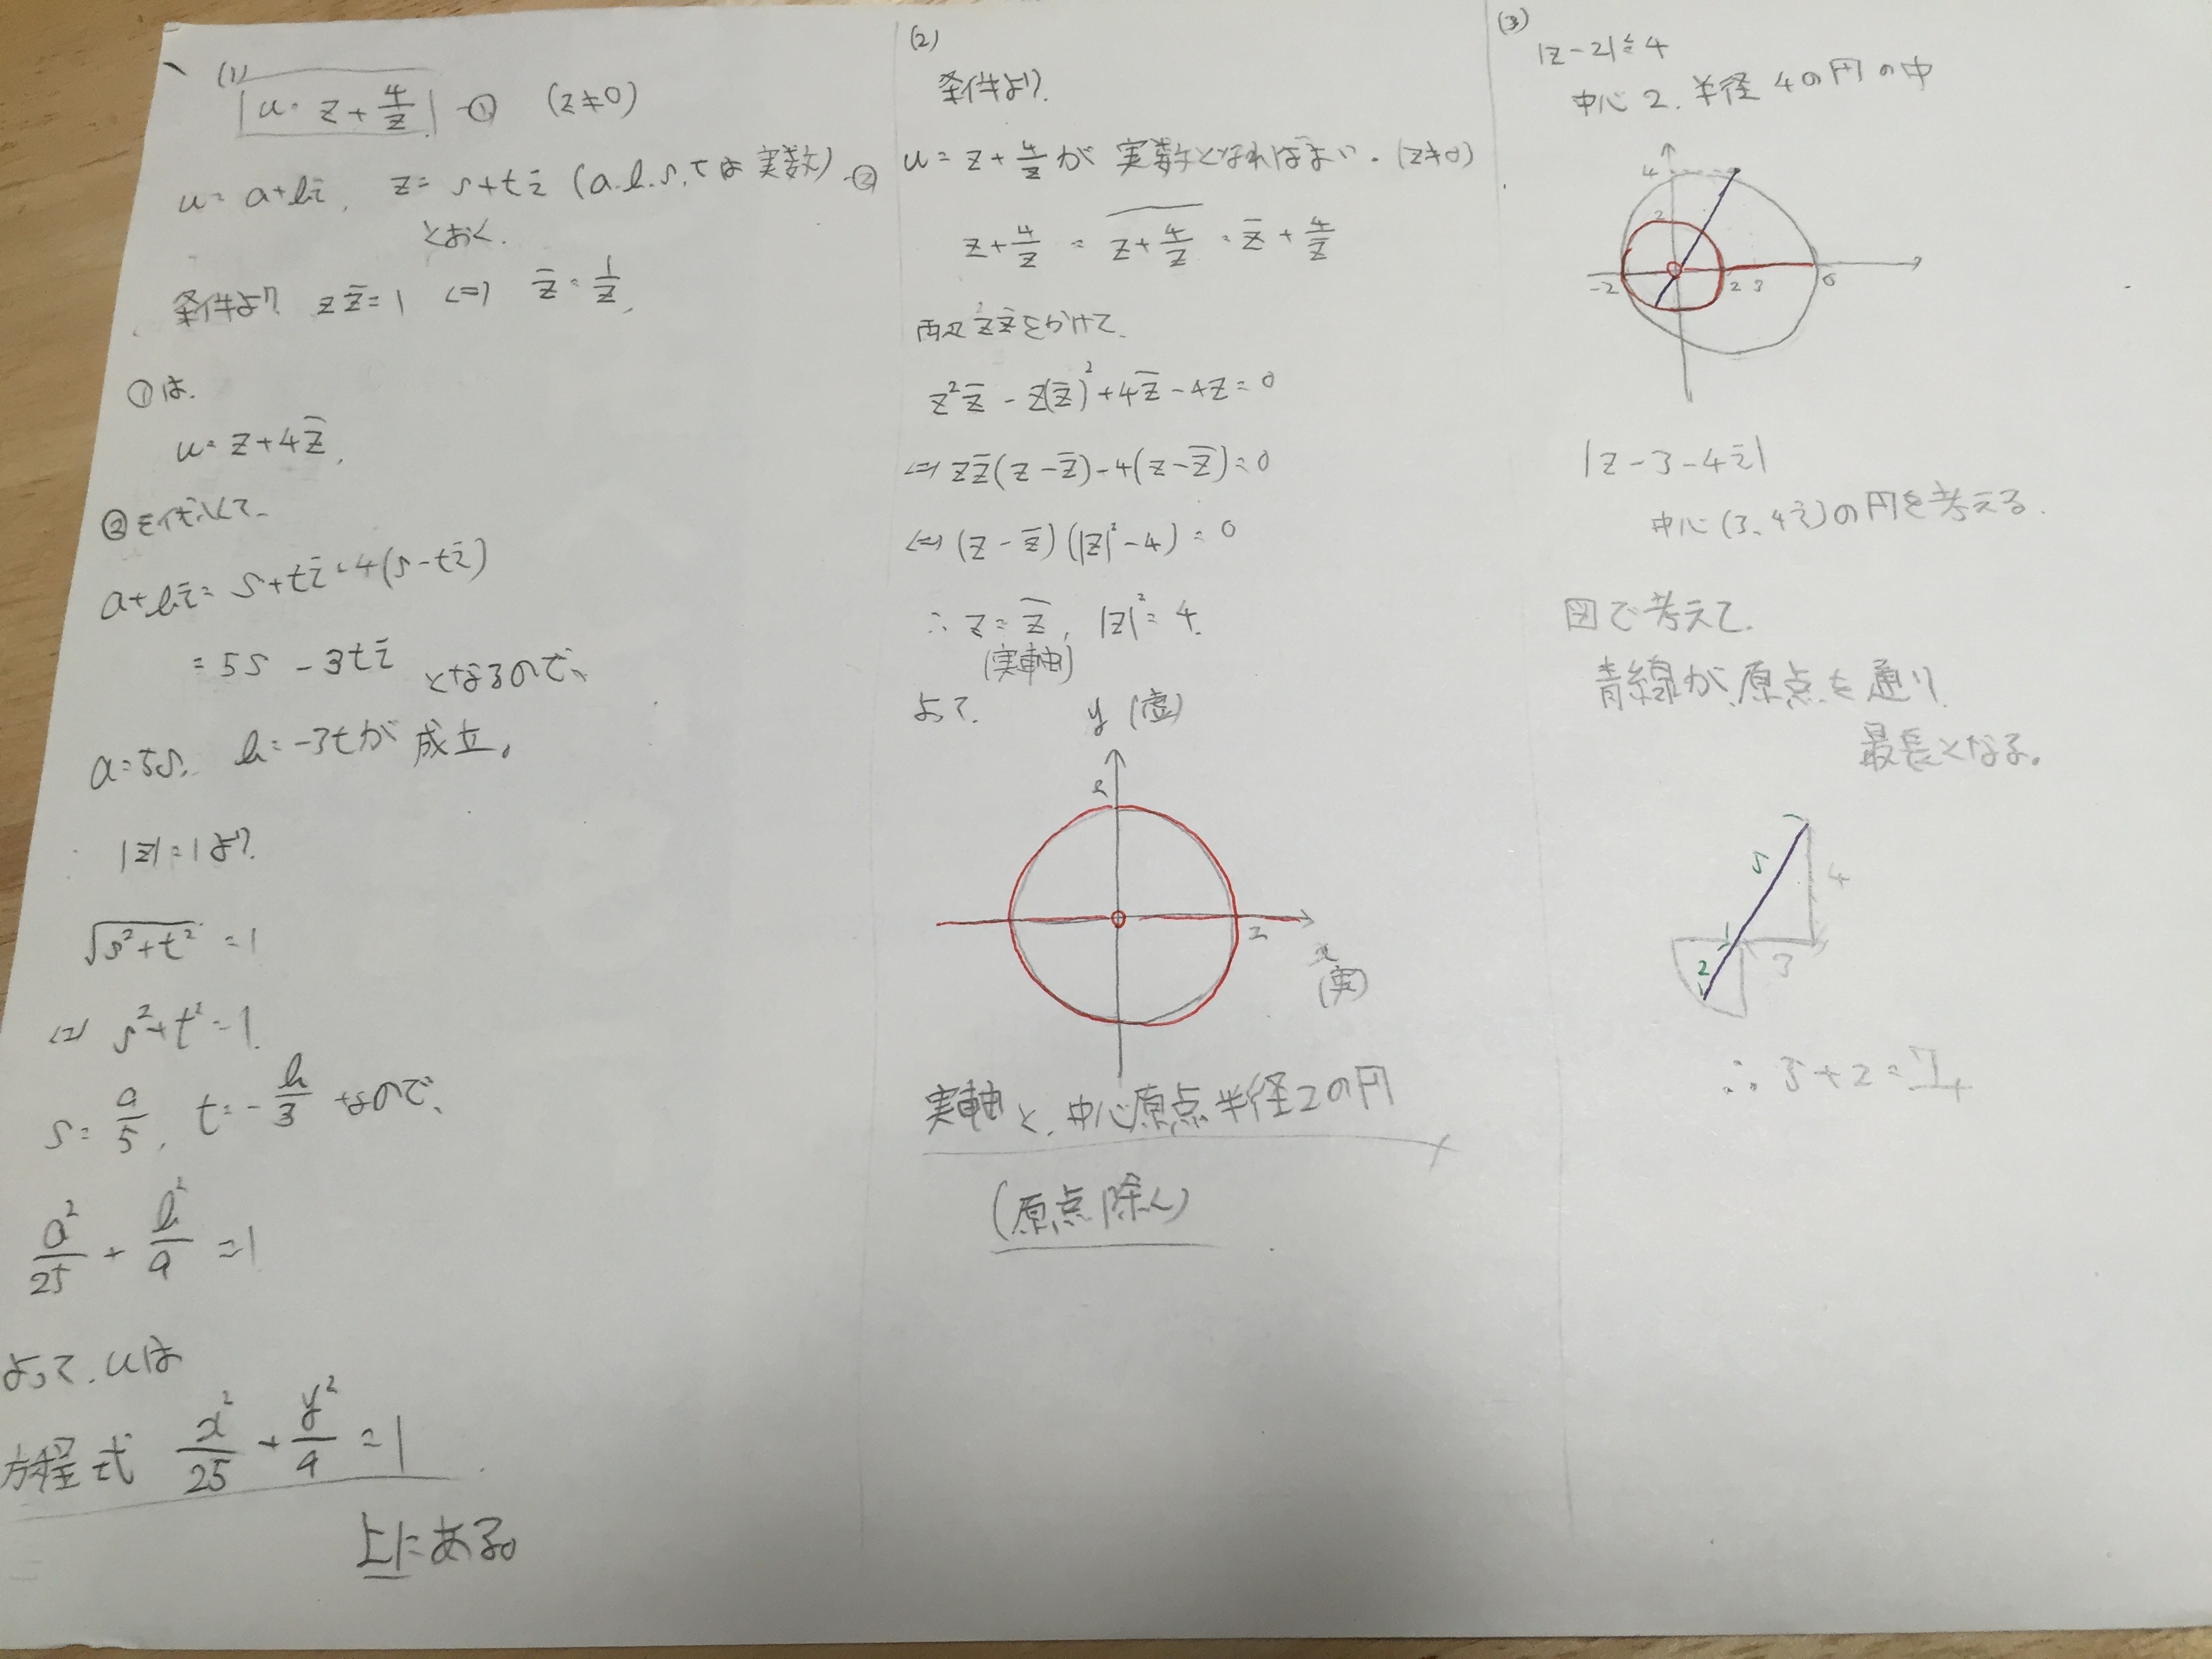 (1)
u = z + 4/z ―① (z≠0)
u = a+bi, z = s+ti (a.b.s.tは実数)―②
とおく.
条件より z z̄ = 1 ⇔ z̄ = 1/z.
①は.
u = z + 4z̄.
②を代入して.
a+bi = s+ti+4(s-ti)
= 5s - 3ti となるので、
a=5s, b=-3tが成立。
|z|=1より.
√(s²+t²) = 1
⇔ s²+t²=1.
s = a/5, t = -b/3 なので、
a²/25 + b²/9 = 1
よって. uは
方程式 x²/25 + y²/9 = 1
上にある。
(2)
条件より.
u = z + 4/z が 実数となればよい. (z≠0)
z + 4/z = \overline{z + 4/z} = z̄ + 4/z̄
両辺 z z̄をかけて.
z² z̄ - z(z̄)² + 4z̄ - 4z = 0
⇔ z z̄(z - z̄) - 4(z - z̄) = 0
⇔ (z - z̄)(|z|² - 4) = 0
∴ z = z̄, |z|² = 4.
(実軸)
よって. y (虚)
2
2
x
(実)
実軸と、中心原点半径2の円
(原点除く)
(3)
|z-2|≦4
中心2. 半径4の円の中
4
2
-2 2 3 6
|z-3-4i|
中心(3.4i)の円を考える.
図で考えて.
青線が原点を通り
最長となる。
5 4
2 3
∴ 5+2=7